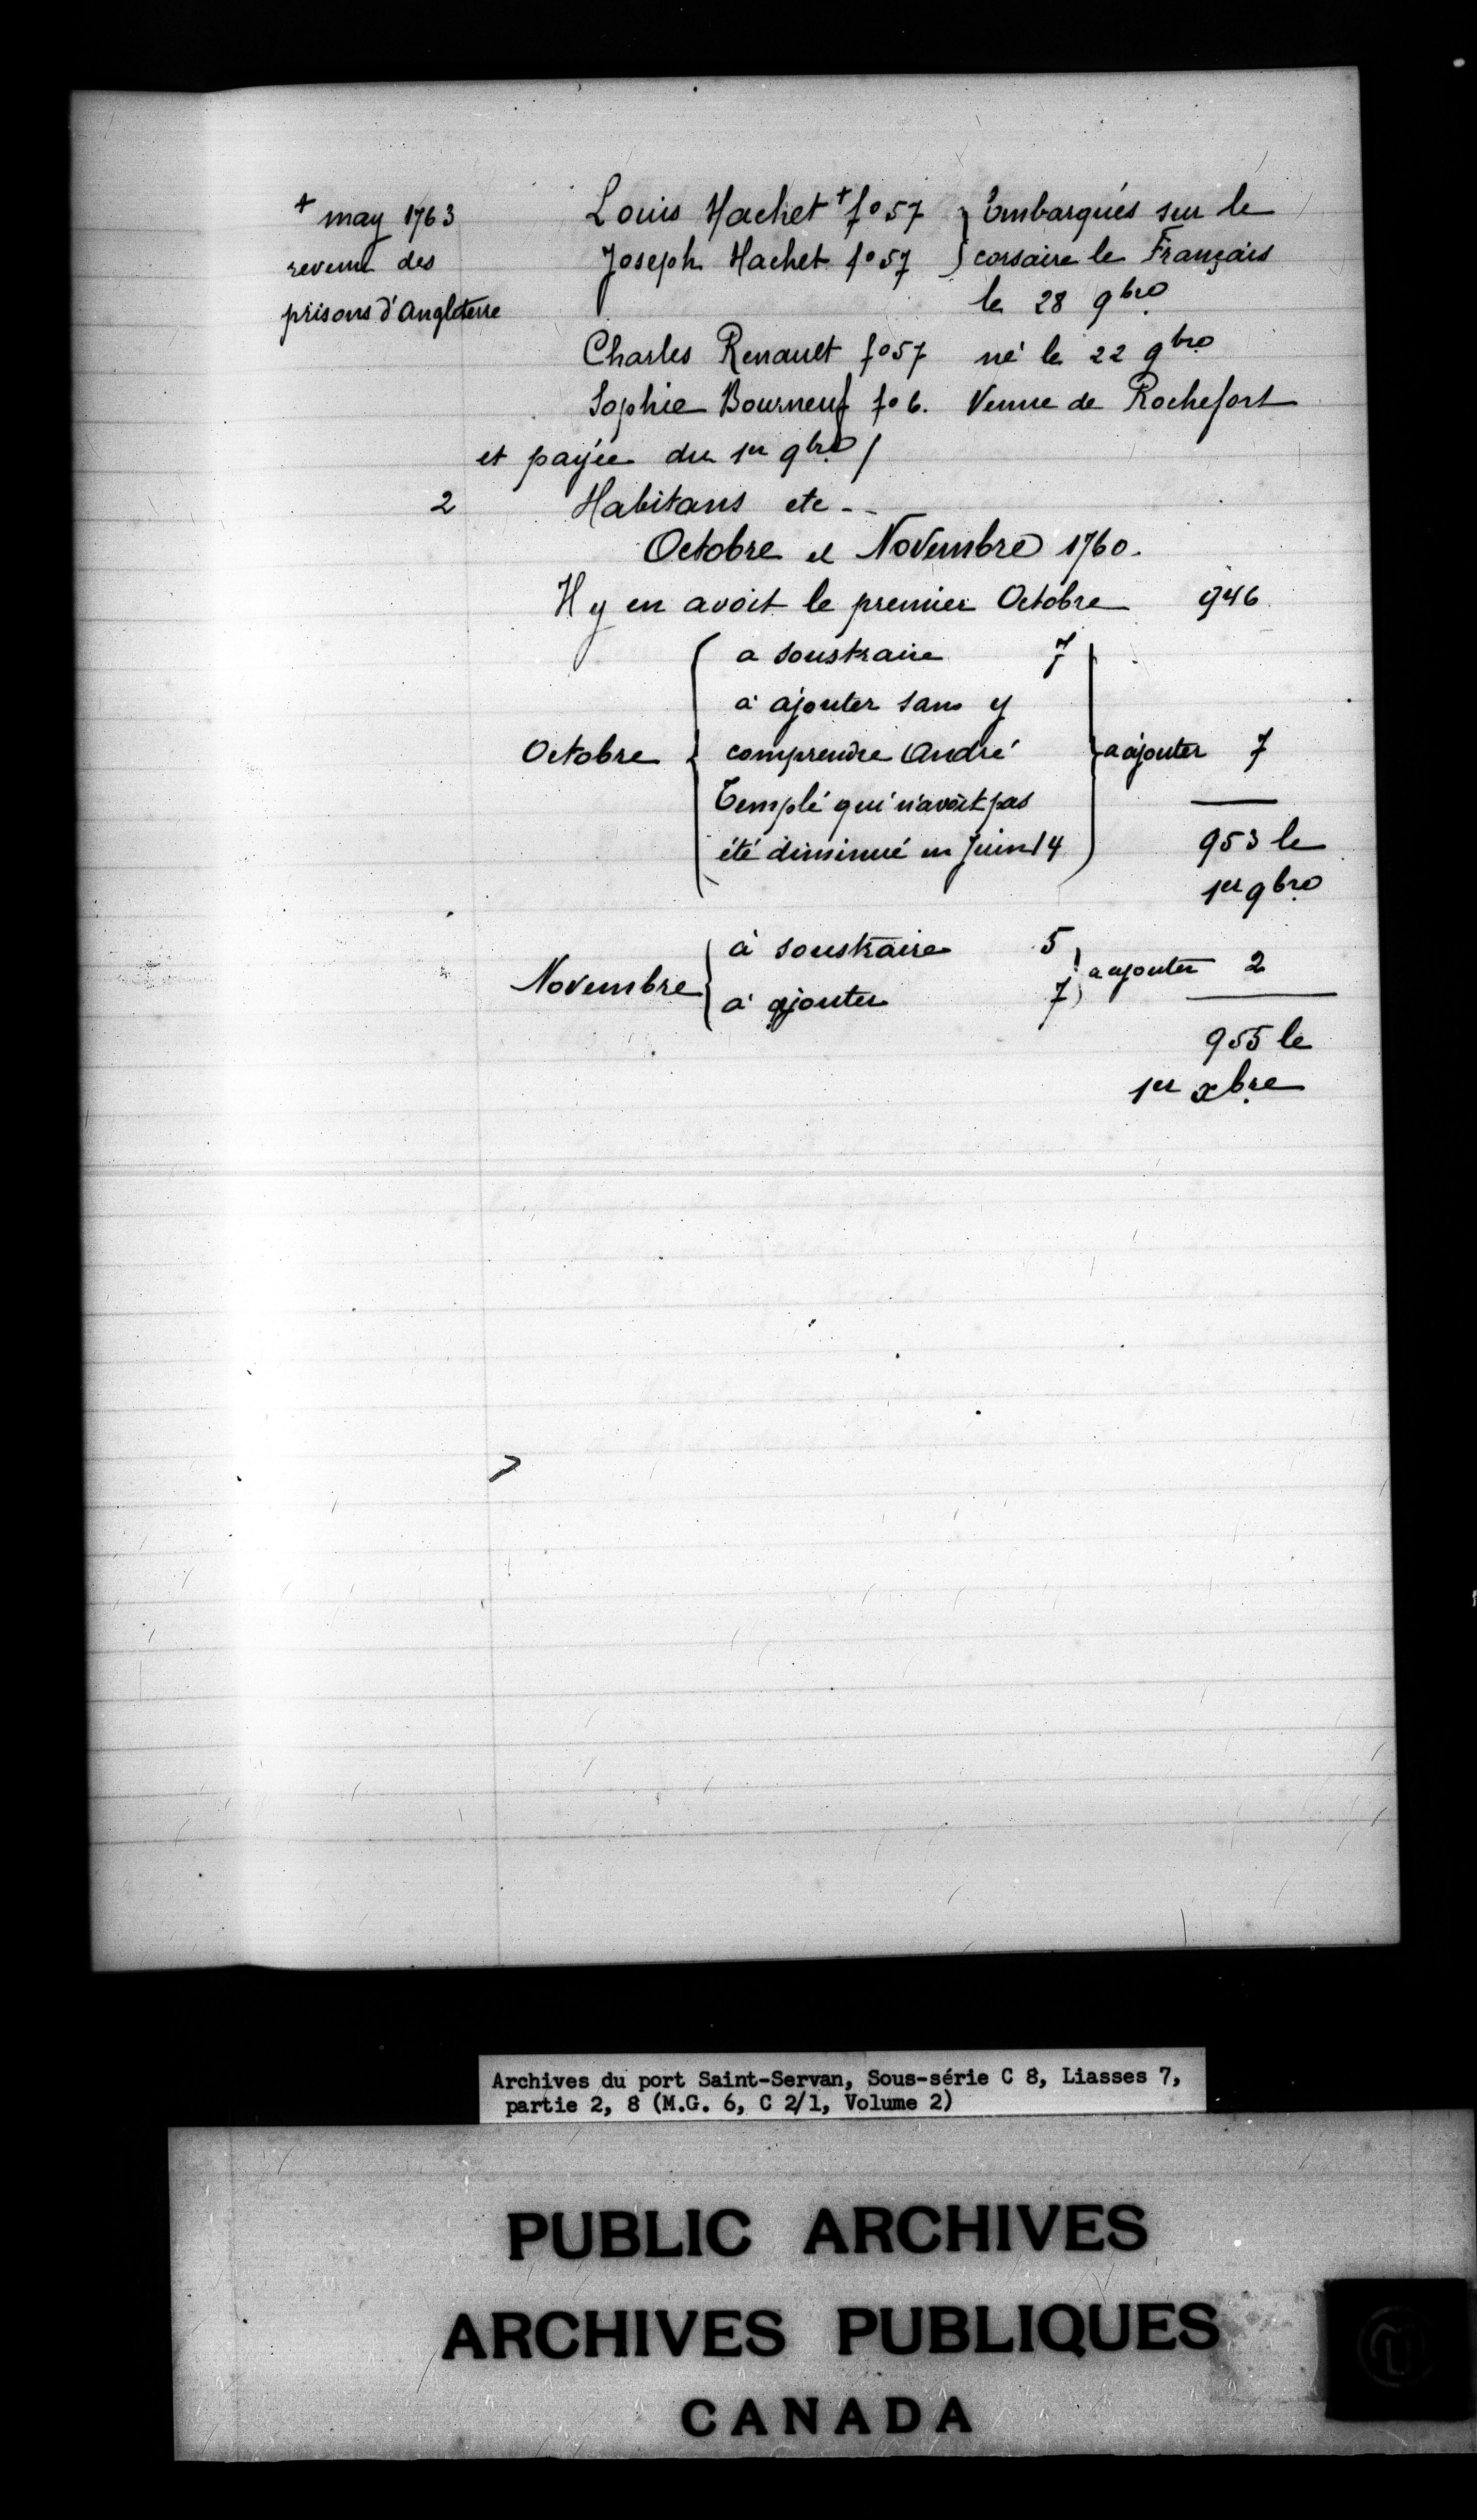 + may 1763
revenu des
prisons d'Angleterre
Louis Hachet + fo 57 } Embarqués sur le
Joseph Hachet fo 57 } corsaire le Français
le 28 9bre
Charles Renault fo 57 né le 22 9bre
Sophie Bourneuf fo 6. Venue de Rochefort
et payée du 1er 9bre /
2 Habitans etc --
Octobre et Novembre 1760.
Il y en avoit le premier Octobre 946
a soustraire 7
à ajouter sans y
Octobre { comprendre André } a ajouter 7
Templé qui n'avoit pas
été diminué en Juin 14
953 le
1er 9bre
à soustraire 5
Novembre { à ajouter 7 } a ajouter 2
955 le
1er xbre
Archives du port Saint-Servan, Sous-série C 8, Liasses 7,
partie 2, 8 (M.G. 6, C 2/1, Volume 2)
PUBLIC ARCHIVES
ARCHIVES PUBLIQUES
CANADA